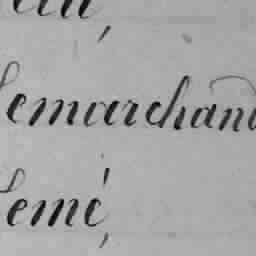 Lemarchand
Lemé,